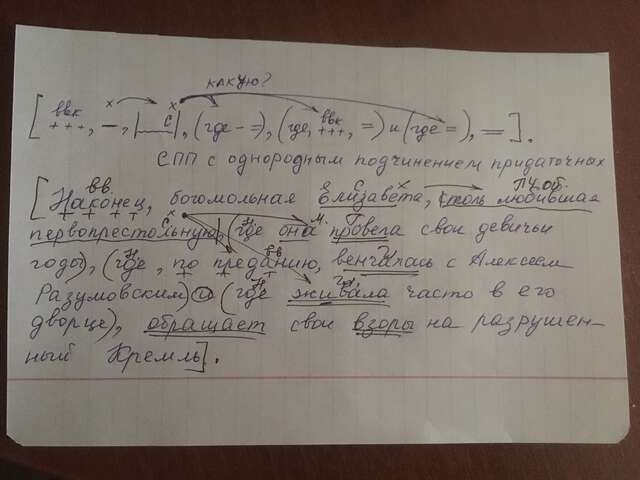 какую?
ввк х х с ввк
[+++, –, |~~|, (где - =), (где, +++, =) и (где =), =].
СПП с однородным подчинением придаточных
вв
[Наконец, богомольная Елизавета, столь любившая
первопрестольную, (где она провела свои девичьи
годы), (где, по преданию, венчалась с Алексеем
Разумовским) и (где живала часто в его
дворце), обращает свои взоры на разрушен-
ный Кремль].